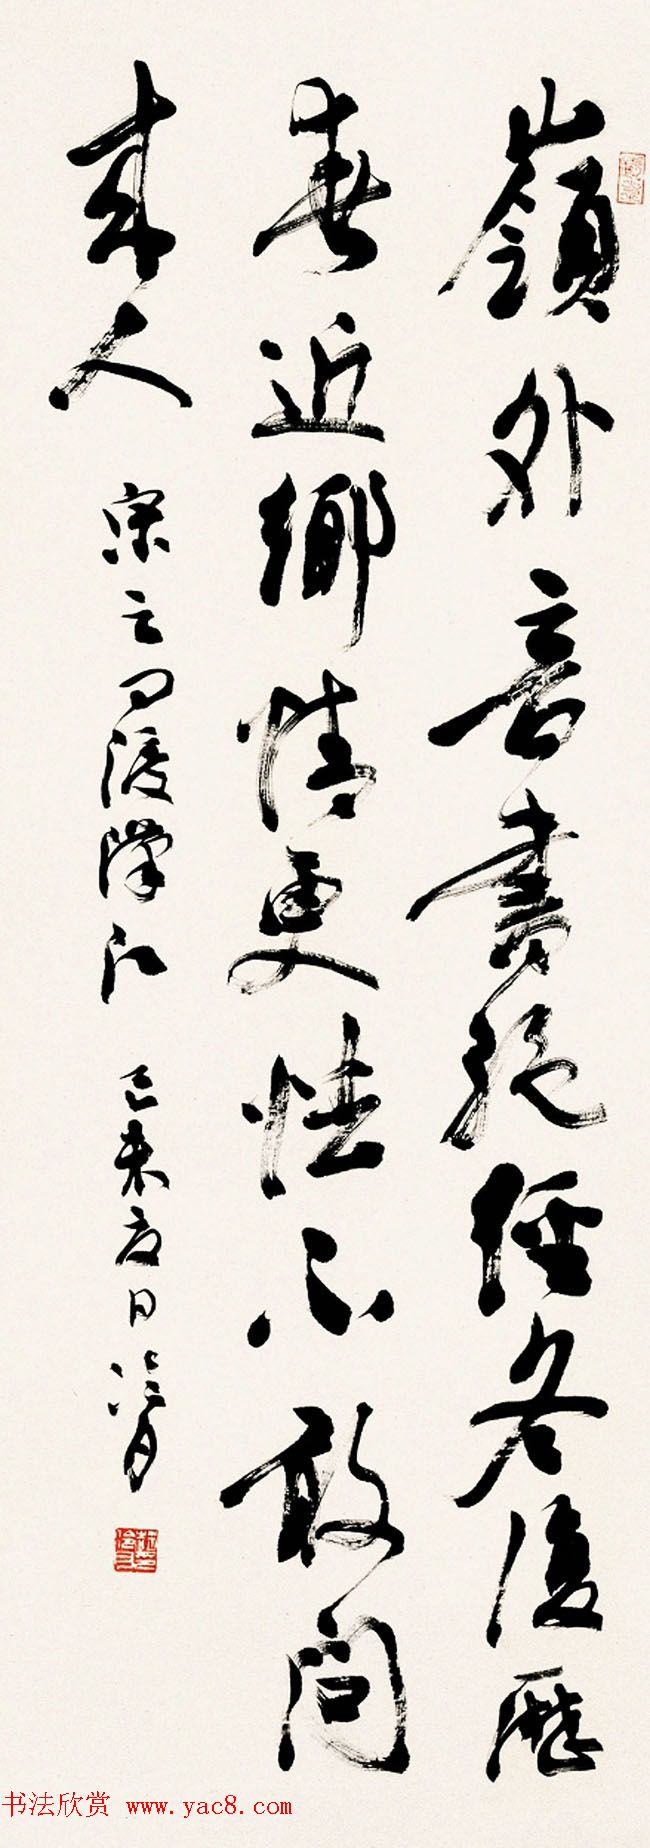 嶺外音書絶經冬復歷
春近鄉情更怯不敢問
來人
宋之問渡漢江 己未夏日 冷月
书法欣赏 www.yac8.com